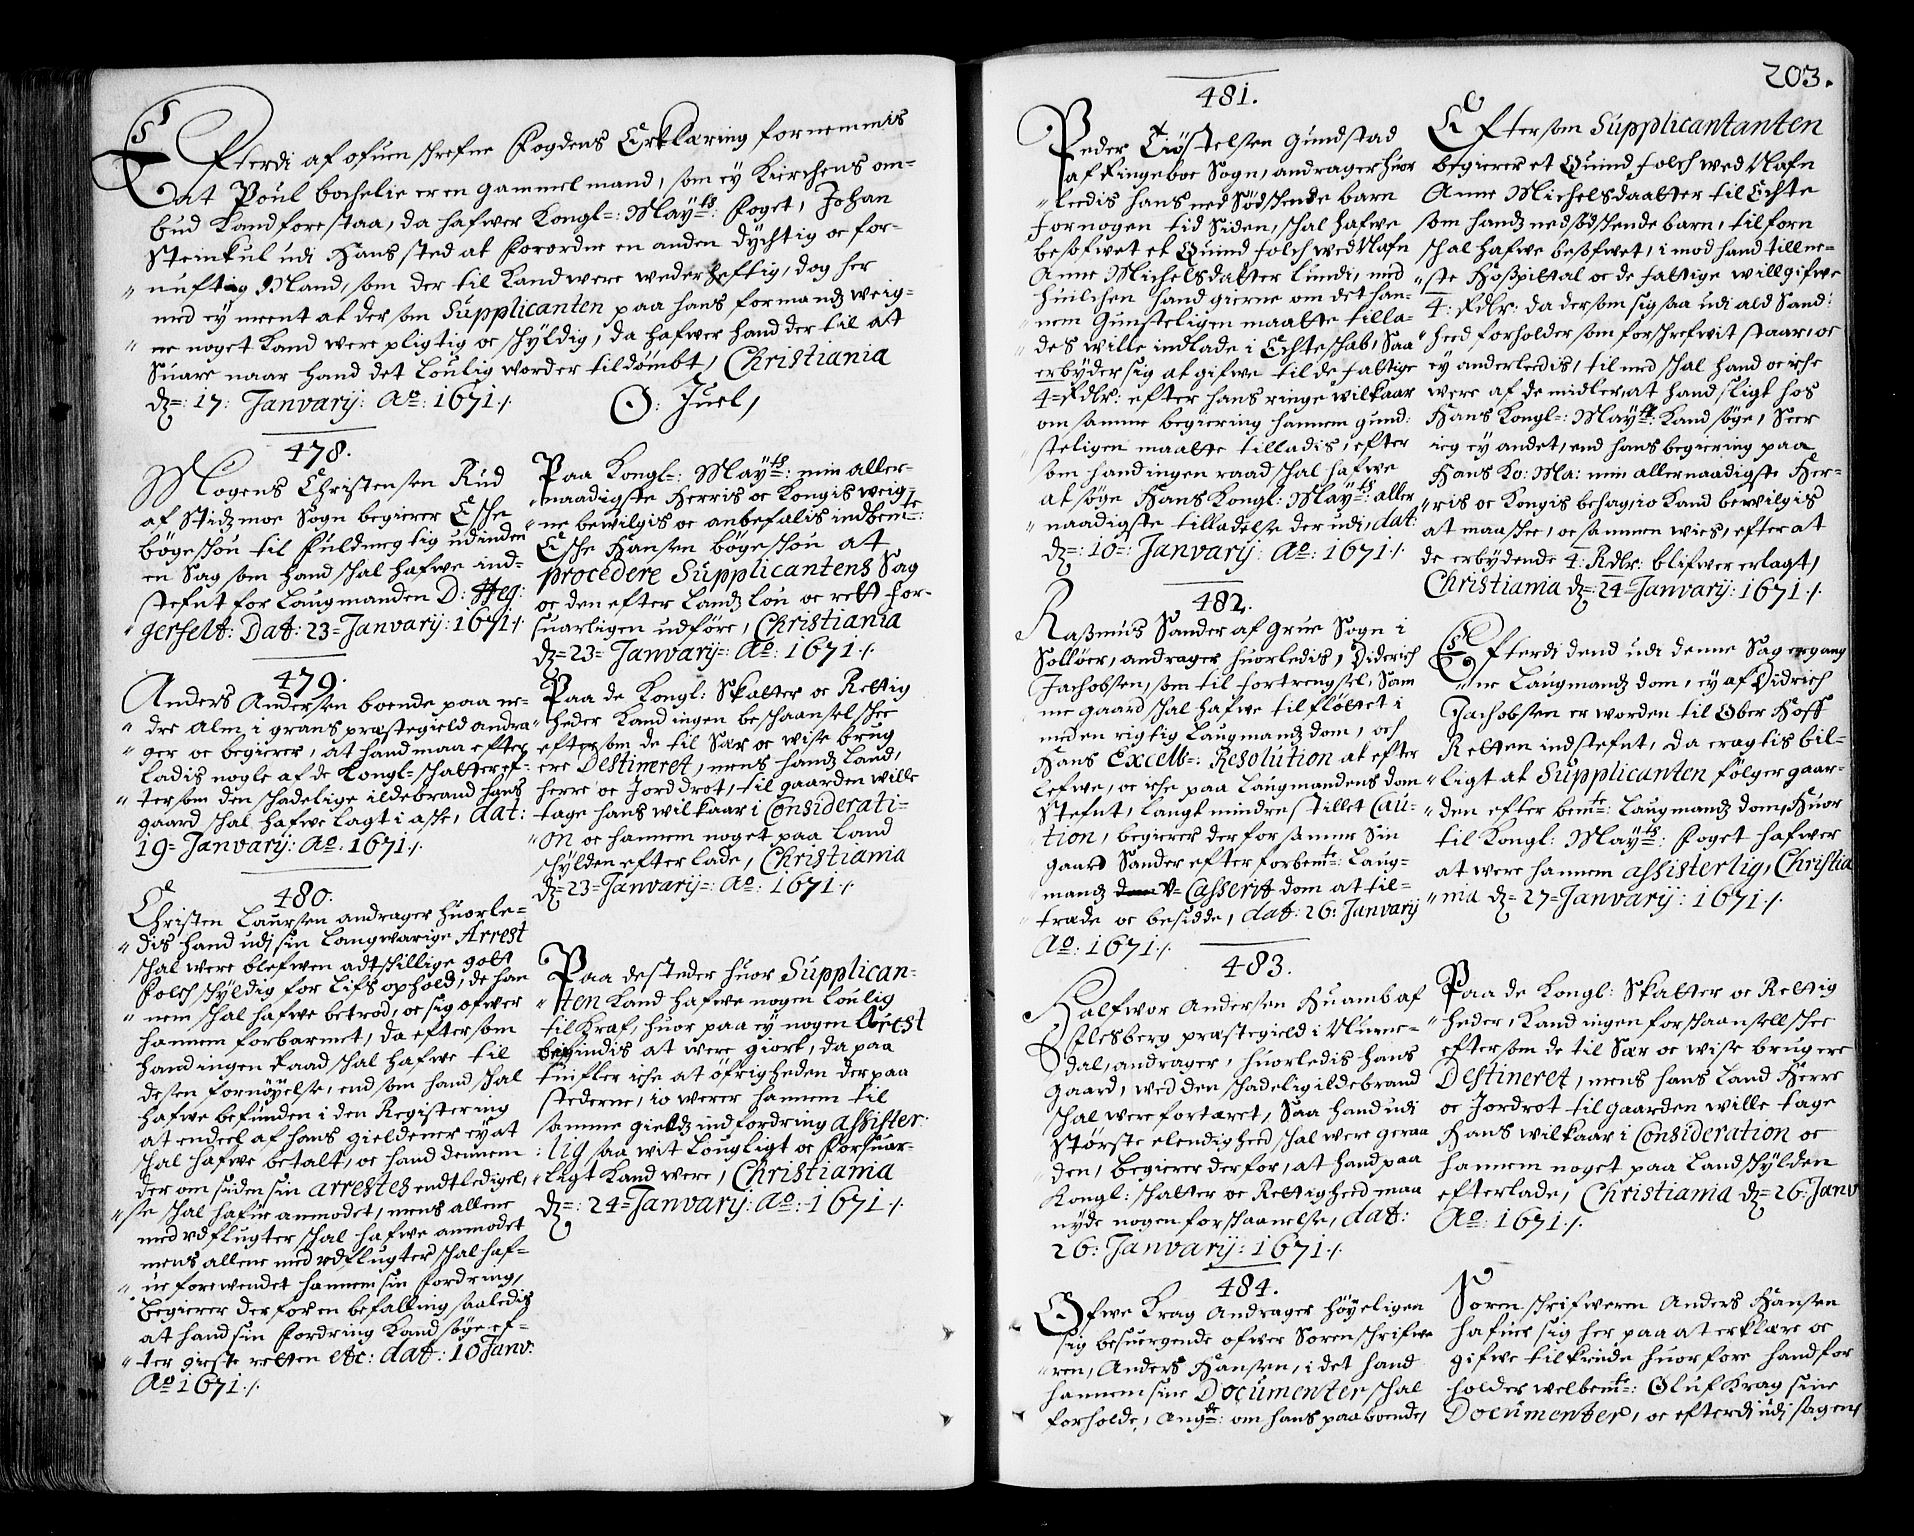 Efterdi af ofuenschrefne Fogdens Erklæring fornemmis
at Poul bochelie er en gammel mand, som ey Kirchens om-
bud Kand forestaa, da hafwer Kongl: Mayts: Foget, Johan
Steinkul udi Hans sted at forordne en anden dychtig oc for-
nuftig Mand, som der til Kand were wederheftig, dog her
med ey meent at dersom Supplicanten paa hans formands weig-
ne noget Kand were pligtig oc schyldig, da hafwer hand der til at
Suare naar hand det Loulig worder tildømbt, Christiania
dz: 17: Janvarij: Ao: 1671 ./.
O: Juel,
478.
Mogens Christensen Rud
af Stidzmoe Sogn begierer Esche
bøgeschou til fuldmegtig udinden
en Sag som hand schal hafwe ind-
stefnt for Laugmanden D: Heg:
gerfelt: Dat: 23= Janvary: 1671 ./.
Paa Kongl: Mayts: min aller-
naadigste Herris oc Kongis weig-
ne bewilgis oc anbefalis indbemte:
Esche Hansen bøgeschou at
procedere Supplicantens Sag
oc den efter Landz lou oc rett for-
suarligen udføre, Christiania
dz= 23= Janvarij=: Ao: 1671 ./.
479.
Anders Andersen boende paa ne-
dre alm i grans præstegield andra
ger oc begierer, at hand maa efter
ladis nogle af de Kongl= schatter ef-
tersom den schadelige ildebrand hans
gaard schal hafwe lagt i asche, dat:
19= Janvarij: Ao: 1671 ./.
Paa de Kongl: Skatter oc Rettig
heder Kand ingen beschaansel schee
eftersom de til Sær oc wise brug
ere Destineret, mens handz Land,
herre oc Jorddrot, til gaarden wille
tage hans wilkaar i Considerati-
on oc hannem noget paa Land
schylden efterlade, Christiania
dz= 23= Janvarij=: Ao: 1671 ./.
480.
Christen Laursen andrager huorle-
dis hand udj sin Langwarige Arrest
schal were blefwen adtskillige gott
Folch schyldig for Lifs ophold, de han
nem schal hafwe betrod, oc sig ofwer
hannem forbarmet, da eftersom
hand ingen Raad schal hafwe til
desen fornøyelse, end som hand schal
hafwe befunden i den Registering
at endeel af hans gieldener ey at
schal hafwe betalt, oc hand dennem
der om siden sin arrestes endtledigel,
se schal hafue anmodet, mens allene
med udflugter schal hafwe anmodet
mens allene med udflugter schal haf-
ue forewendet hannem sin fordring,
Begierer derfor en befalling saaledis
at hand sin fordring Kand søge ef-
ter gieste retten etc: dat: 10 Janv:
Ao 1671 ./.
Paa de steder huor Supplican-
ten Kand hafwe nogen Loulig
til Kraf, huor paa ey nogen Arest
befindis at were giort, da paa
tuifler iche at øfrigheden der paa
stederne, io werer hannem til
samme gieldz indfordring assister:
lig saa wit Lougligt oc forsuar-
ligt Kand were, Christiania
dz=: 24= Janvarij: Ao: 1671 ./.
203.
481.
Peder Tiøstelsen Gundstad
af Ringeboe Sogn, andrager huor
leedis hans nedSødskende barn
for nogen tid siden, schal hafwe
besofwet et Quindfolch wed Nafn
Anne Michelsdatter Lundi, med
huilchen hand gierne om det han-
nem Gunsteligen maatte tilla-
des wille indlade i Echteschab, Saa
erbyder sig at gifwe til de fattige
4= Rdlr: efter hans ringe wilkaar
om samme begiering hannem gund:
steligen maatte tilladis, efter
som hand ingen raad schal hafwe
at søge Hans Kongl: Mayts: aller
naadigste tilladelse der udi, dat:
dz=: 10=: Janvarij: Ao: 1671 ./.
Eftersom Supplicantanten
begierer et Quindfolch wed Nafn
Anne Michelsdaatter til Echte
som handz nedsødschende barn, tilforn
schal hafwe besofwet, imod hand till ne-
ste Hospittal oc de fattige will gifwe
4: Rdlr: da dersom sig saa udi ald Sand:
heed forholder som forschrefwit staar, oc
ey anderleedis, til med schal hand oc iche
were af de midler, at hand sligt hos
Hans Kongl=: Mayts: Kand søge, Seer
ieg ey andet, end hans begiering paa
Hans Ko: Ma: min allernaadigste Her-
ris oc Kongis behag, io Kand bewilgis
at maa skee, oc sammen wies, efter at
de erbydende 4: Rdlr: blifwer erlagt,
Christiania dz=: 24= Janvarij: 1671 ./.
482.
Rasmus Sander af Grue Sogn i
Solløer, andrager huorledis, Diderich
Jachobsen, som til fortrengsel, Sam
me gaard schal hafwe tilfløttet i
meden rigtig Laugmandz dom, och
Hans Excell=: Resolution at efter
Lefwe, oc iche paa Laugmandens dom
Stefnt, Langt mindre stillet Cau-
tion, begierer derfor samme Sin
gaard Sander efter forbemte: Laug-
mandz v= Casserit dom at til-
træde oc besidde, dat: 26: Janvarij
Ao: 1671 ./.
Efterdi dend udi denne Sag ergang
ne Laugmandz dom, ey af Didrich
Jachobsen er worden til Ober Hoff
Retten indstefnt, da eragtis bil-
ligt at Supplicanten følger gaar-
den efter bemte: Laugmandz dom, Huor
til Kongl: Mayts: Foget hafwer
at were hannem assisterlig, Christia
nia dz= 27= Janvarij: 1671 ./.
483.
Halfwor Andersen Huamb af
Flesberg præstegield i Nume-
dal, andrager, huorledis hans
gaard, wed den schadelig ildebrand
schal were fortæret, Saa hand udi
Største elendigheed schal were geraa
den, begierer derfor, at hand paa
Kongl: schatter oc Rettigheed maa
nyde nogen forschaanelse, dat:
26: Janvarij: 1671 ./.
Paa de Kongl: Skatter oc Rettig
heder, Kand ingen forschaansell schee
eftersom de til Sær oc wise brug ere
Destineret, mens hans Land Herre
oc Jordrot til gaarden wille tage
Hans wilkaar i Consideration oc
hannem noget paa Landschylden
efterlade, Christiania dz= 26: Janv
Ao: 1671 ./.
484.
Ofwe Krag Andrager høyeligen
sig besuergende ofwer Sorenschrifwe
ren, Anders Hansen, i det hand
hannem sine Documenter schal
forholde, angde: om hans paaboende,
Sorenschrifweren Anders Hansen
hafuer sig her paa at erklære oc
gifwe tilkiende huorfore hand for
holder welbemte: Oluf Krag sine
Documenter, oc efterdj udj sagens